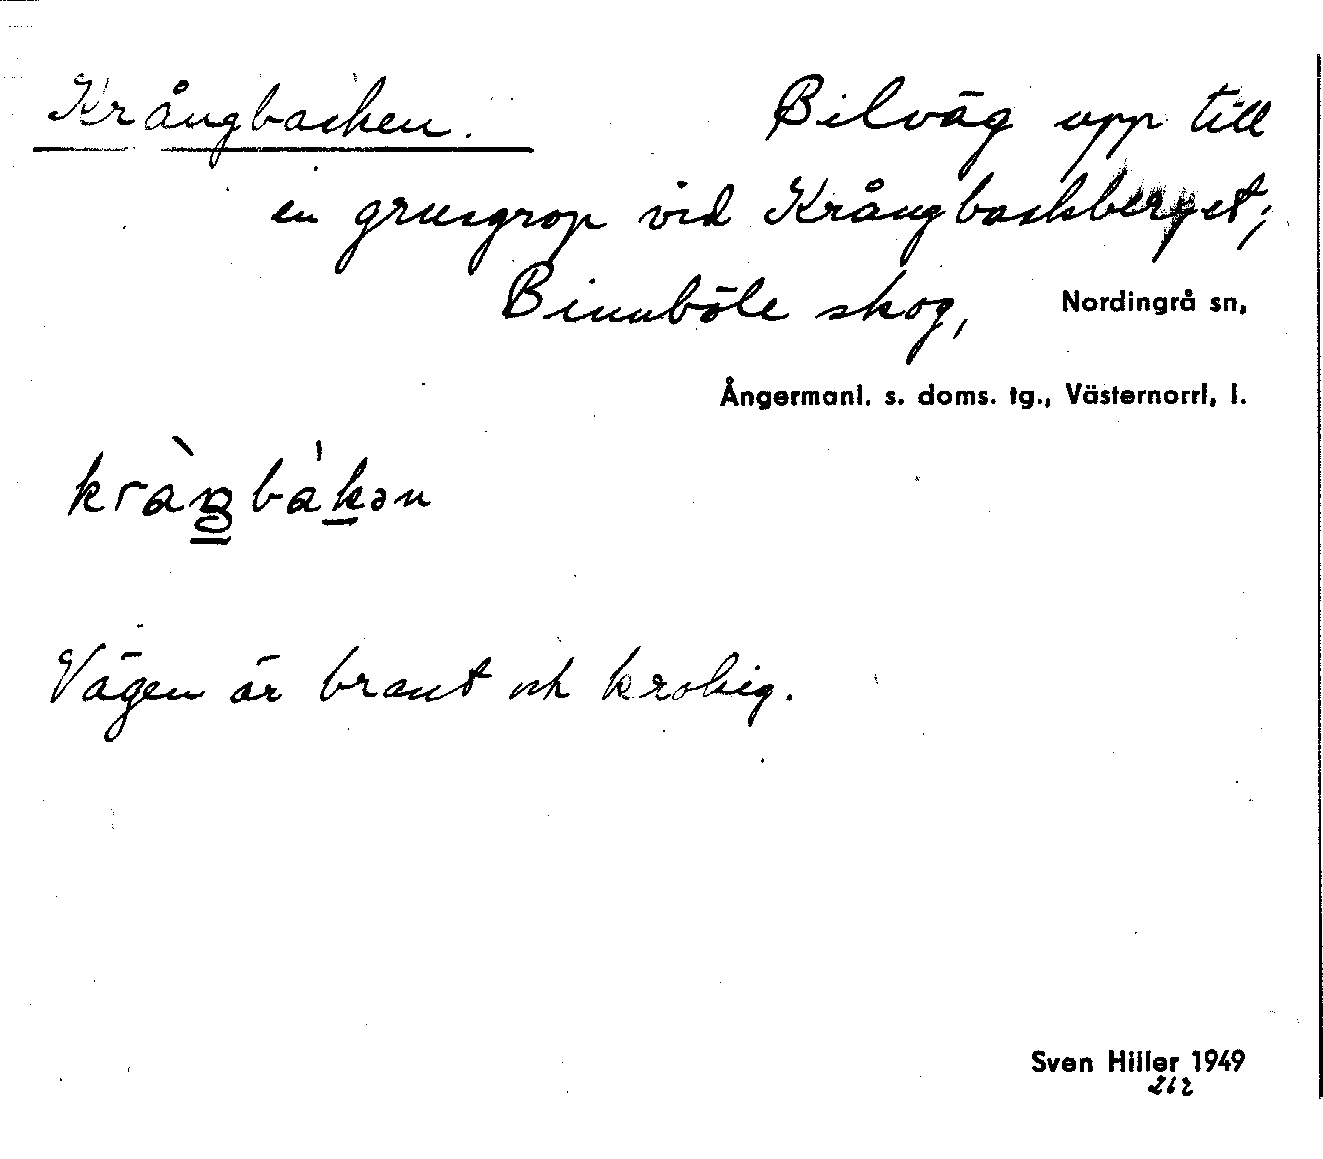 Krångbacken. Bilväg upp till
en grusgrop vid Krångbackberget;
Binnböle skog, Nordingrå sn,
Ångermanl. s. doms. tg., Västernorrl. l.
kràŋbákən
Vägen är brant och krokig.
Sven Hiller 1949
262